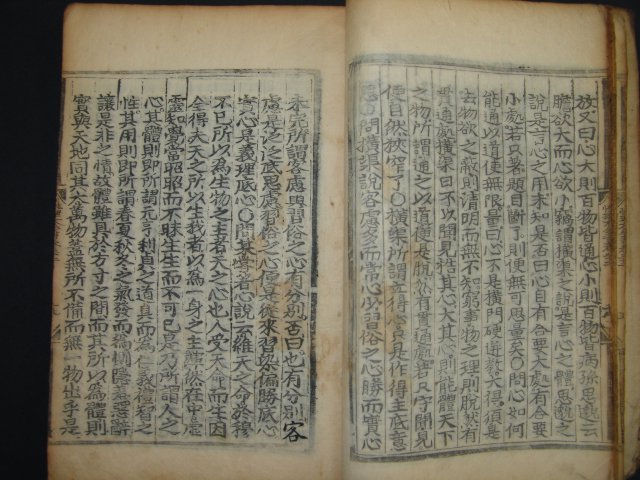 放又曰心大則百物皆通心小則百物皆病孫思邈云
膽欲大而心欲小竊謂橫渠之說是言心之體思邈之
說是言心之用未知是否曰心自有合要大處有合要
小處若只著題目斷了則便無可思量矣○問心如何
能通以道使無限量曰心不是橫門硬迸教大得須是
去物欲之蔽則清明而無不知窮事物之理則脫然有
貫通處橫渠曰不以聞見梏其心大其心則能體天下
之物所謂通之以道便是脫然有貫通處若只守聞見
便自然狹窄了○橫渠所謂立得心只是作得主底意
思○問橫渠說客慮多而常心少習俗之心勝而實心
未完所謂客慮與習俗之心有分別否曰也有分別客
慮是泛泛底思慮習俗之心便是從來習染偏勝底心
實心是義理底心○問某嘗著心說云維天之命於穆
不已所以為生物之主者天之心也人受天命而生因
全得夫天之所以生我者以為一身之主渾然在中虛
靈知覺常昭昭而不昧生生而不可已是乃所謂人之
心其體則即所謂元亨利貞之道具而為仁義禮智之
性其用則即所謂春夏秋冬之氣發而為惻隱羞惡辭
讓是非之情故體雖具於方寸之間而其所以為體則
實與天地同其大萬物蓋無所不備而無一物出乎是